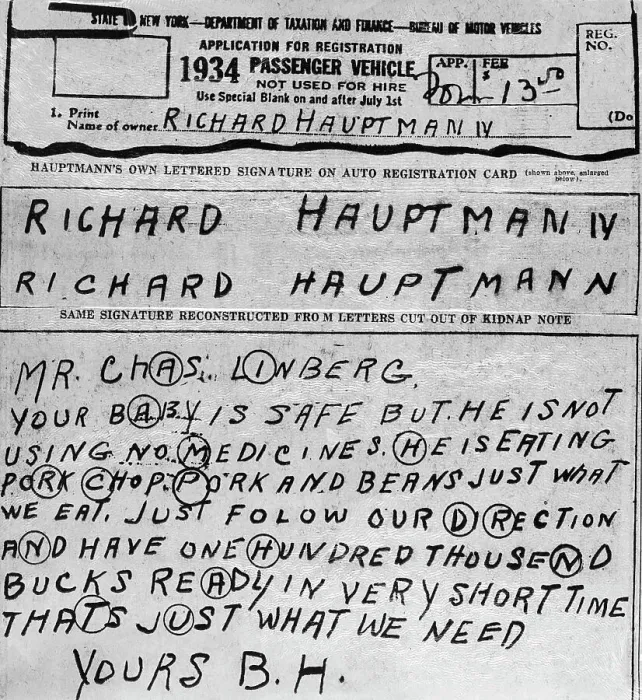 STATE OF NEW YORK—DEPARTMENT OF TAXATION AND FINANCE—BUREAU OF MOTOR VEHICLES
REG.
NO.
APPLICATION FOR REGISTRATION
1934 PASSENGER VEHICLE
NOT USED FOR HIRE
Use Special Blank on and after July 1st
APP. FEE
$ 13
1. Print
Name of owner RICHARD HAUPTMANN
(Do
HAUPTMANN'S OWN LETTERED SIGNATURE ON AUTO REGISTRATION CARD (shown above, enlarged below).
RICHARD HAUPTMANN
RICHARD HAUPTMANN
SAME SIGNATURE RECONSTRUCTED FROM LETTERS CUT OUT OF KIDNAP NOTE
MR. CHAS. LINBERG,
YOUR BABY IS SAFE BUT. HE IS NOT
USING NO. MEDICINES. HE IS EATING
PORK CHOP. PORK AND BEANS JUST WHAT
WE EAT. JUST FOLOW OUR DIRECTION
AND HAVE ONE HUNDRED THOUSEND
BUCKS READY IN VERY SHORT TIME
THATS JUST WHAT WE NEED
YOURS B.H.